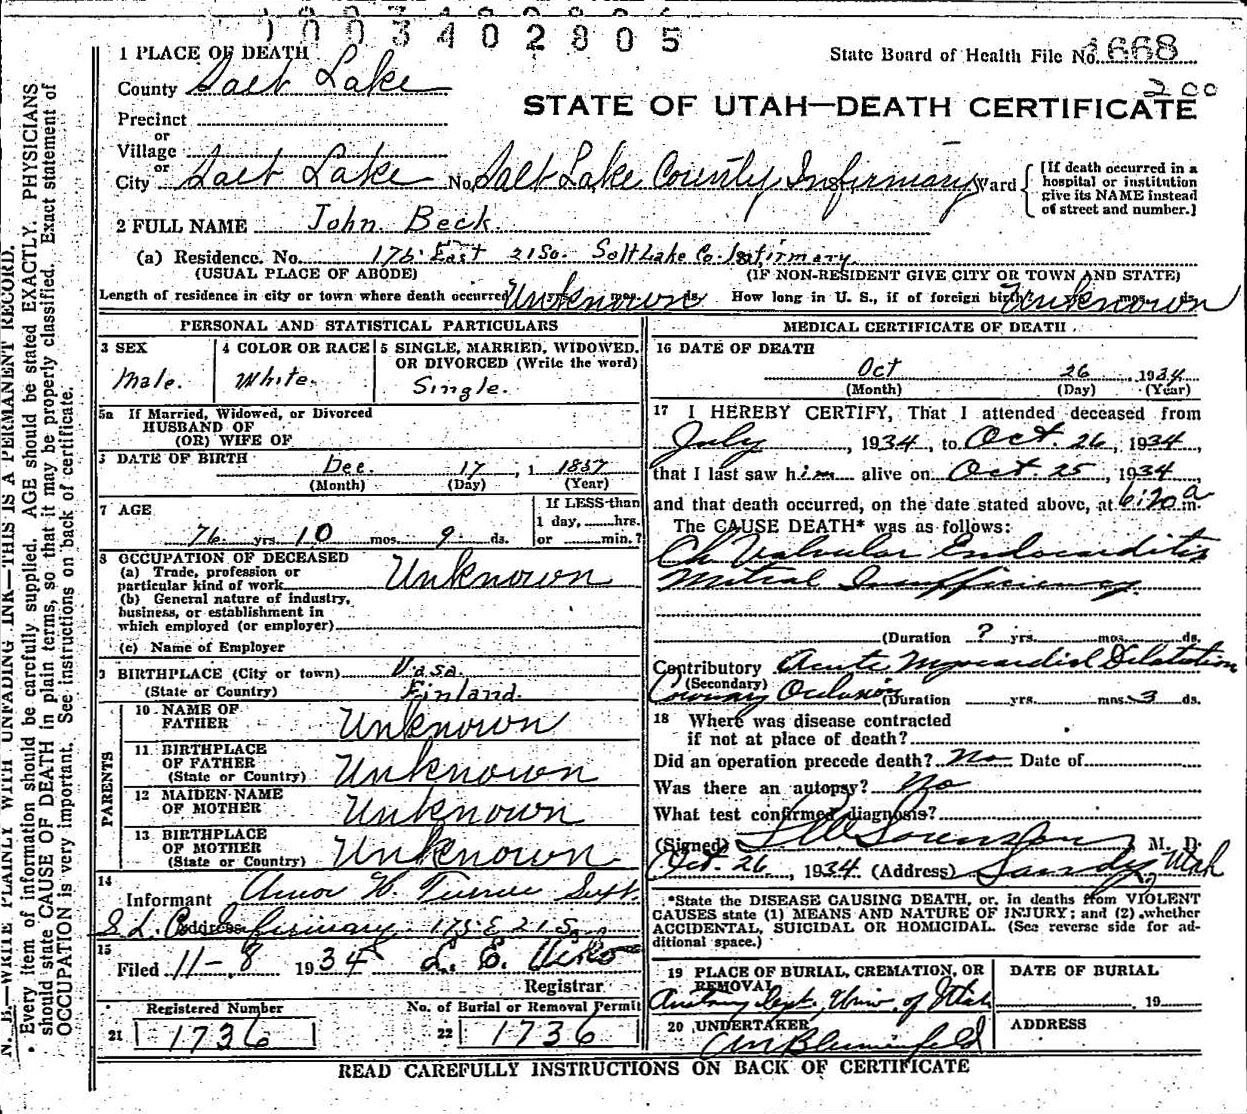 1003402805
1 PLACE OF DEATH
State Board of Health File No. 1668
County Salt Lake
200
STATE OF UTAH—DEATH CERTIFICATE
Precinct
or
Village
or
City Salt Lake No. Salt Lake County Infirmary Ward
[If death occurred in a
hospital or institution
give its NAME instead
of street and number.]
2 FULL NAME John Beck.
(a) Residence. No. 175 East 21 So. Salt Lake Co. Infirmary
(USUAL PLACE OF ABODE) (IF NON-RESIDENT GIVE CITY OR TOWN AND STATE)
Length of residence in city or town where death occurred Unknown ds. How long in U. S., if of foreign birth? Unknown
PERSONAL AND STATISTICAL PARTICULARS
3 SEX
Male.
4 COLOR OR RACE
White.
5 SINGLE, MARRIED, WIDOWED.
OR DIVORCED (Write the word)
Single.
5a If Married, Widowed, or Divorced
HUSBAND OF
(OR) WIFE OF
DATE OF BIRTH
Dec. 17, 1 1857
(Month) (Day) (Year)
7 AGE
76 yrs. 10 mos. 9 ds.
If LESS than
1 day, hrs.
or min.?
8 OCCUPATION OF DECEASED
(a) Trade, profession or
particular kind of work Unknown
(b) General nature of industry,
business, or establishment in
which employed (or employer)
(c) Name of Employer
9 BIRTHPLACE (City or town) Vasa.
(State or Country) Finland.
PARENTS
10 NAME OF
FATHER Unknown
11 BIRTHPLACE
OF FATHER
(State or Country) Unknown
12 MAIDEN NAME
OF MOTHER Unknown
13 BIRTHPLACE
OF MOTHER
(State or Country) Unknown
14
Informant Supt.
S. L. Co. Infirmary 175 E 21 So.
Address
15
Filed 11-8 1934 L. E.
Registrar
Registered Number
21 1736
No. of Burial or Removal Permit
22 1736
MEDICAL CERTIFICATE OF DEATH
16 DATE OF DEATH
Oct 26, 1934
(Month) (Day) (Year)
17 I HEREBY CERTIFY, That I attended deceased from
July, 1934, to Oct. 26, 1934,
that I last saw him alive on Oct. 25, 1934,
and that death occurred, on the date stated above, at 6:20 a m.
The CAUSE DEATH* was as follows:
Ch Valvular Endocarditis
Mitral Insufficiency.
(Duration ? yrs. mos. ds.
Contributory Acute Myocardial Dilatation
(Secondary)
Coronary Occlusion (Duration yrs. mos. 3 ds.
18 Where was disease contracted
if not at place of death?
Did an operation precede death? No Date of
Was there an autopsy? No
What test confirmed diagnosis?
(Signed) Sorenson, M. D.
Oct. 26, 1934. (Address) Sandy, Utah
*State the DISEASE CAUSING DEATH, or, in deaths from VIOLENT
CAUSES state (1) MEANS AND NATURE OF INJURY; and (2) whether
ACCIDENTAL, SUICIDAL OR HOMICIDAL. (See reverse side for ad-
ditional space.)
19 PLACE OF BURIAL, CREMATION, OR
REMOVAL
Anatomy Dept, Univ. of Utah
DATE OF BURIAL
19
20 UNDERTAKER
Blumenfeld
ADDRESS
READ CAREFULLY INSTRUCTIONS ON BACK OF CERTIFICATE
N. B.—WRITE PLAINLY WITH UNFADING INK—THIS IS A PERMANENT RECORD.
Every item of information should be carefully supplied. AGE should be stated EXACTLY. PHYSICIANS
should state CAUSE OF DEATH in plain terms, so that it may be properly classified. Exact statement of
OCCUPATION is very important. See instructions on back of certificate.